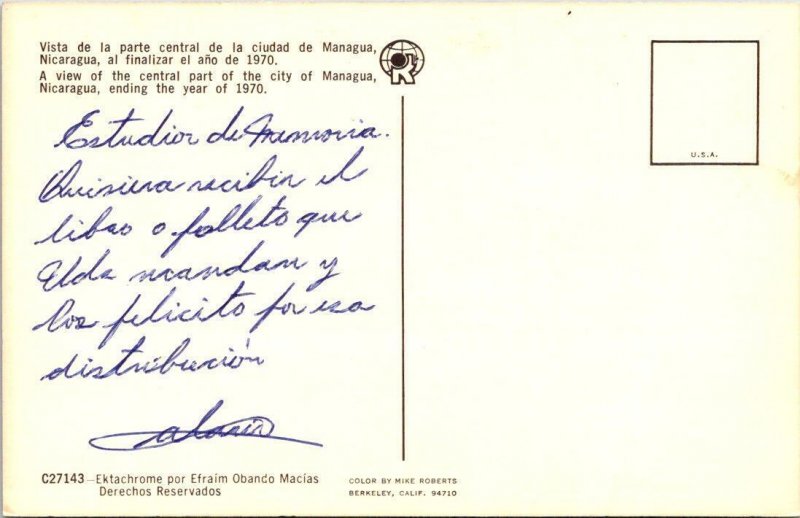 Vista de la parte central de la ciudad de Managua,
Nicaragua, al finalizar el año de 1970.
A view of the central part of the city of Managua,
Nicaragua, ending the year of 1970.
Estudios de Memoria.
Quisiera recibir el
libro o folleto que
Uds mandan y
los felicito por esa
distribución
U.S.A.
C27143—Ektachrome por Efraím Obando Macías
Derechos Reservados
COLOR BY MIKE ROBERTS
BERKELEY, CALIF. 94710